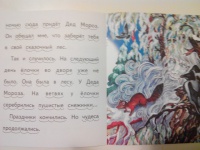 ночью сюда придёт Дед Мороз.
Он обещал мне, что заберёт тебя
в свой сказочный лес.
Так и случилось. На следующий
день ёлочки во дворе уже не
было. Она была в лесу. У Деда
Мороза. На ветвях у ёлочки
серебрились пушистые снежинки...
Праздники кончились. Но чудеса
продолжались.